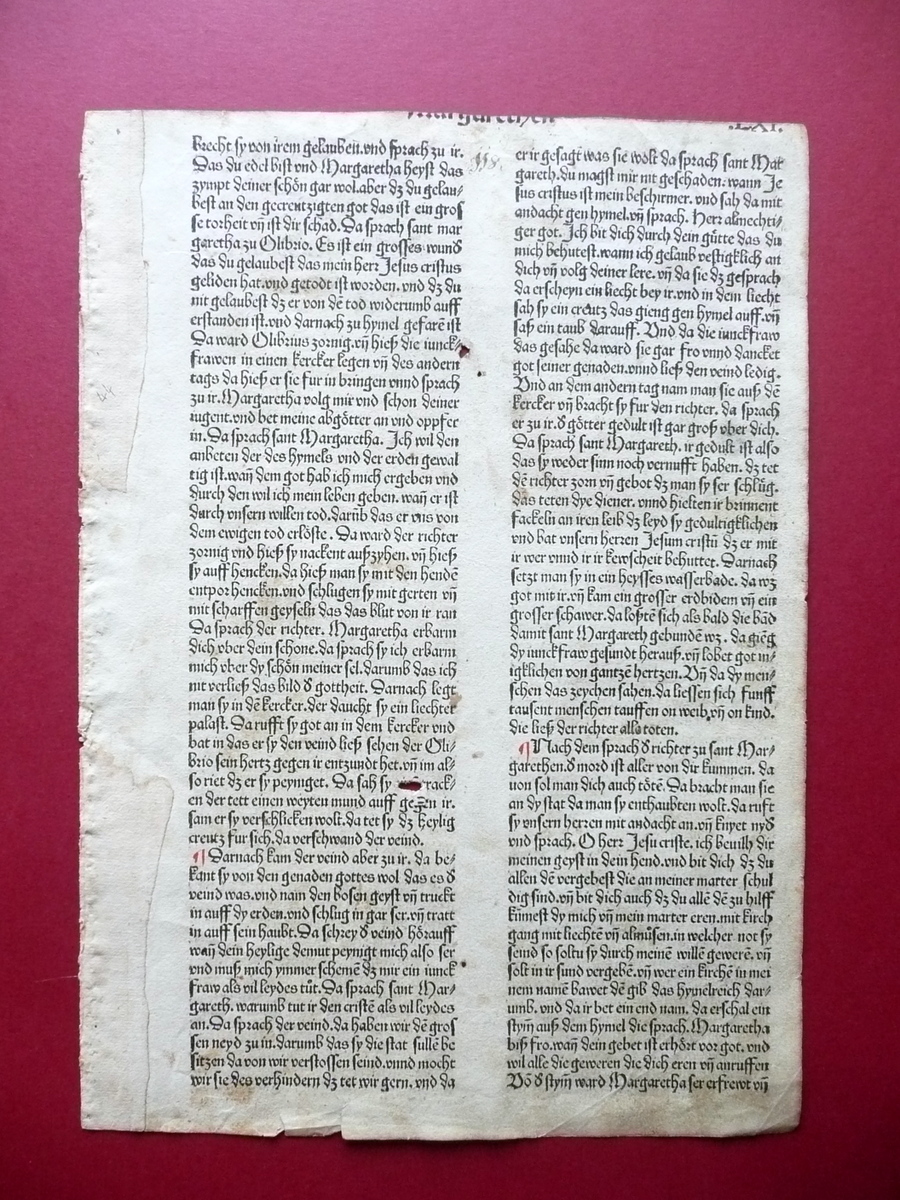 Margarethen
.LXI.
brecht sy von irem gelauben.vnd sprach zu ir.
Das du edel bist vnd Margaretha heyst das
zympt deiner schön gar wol.aber dz du gelau⸗
best an den gecreutzigten got das ist ein gros
se torheit vñ ist dir schad. Da sprach sant mar
garetha zu Olibrio. Es ist ein grosses wund
das du gelaubest das mein herr Jesus cristus
geliden hat.vnd getodt ist worden. vnd dz du
nit gelaubest dz er von dẽ tod widerumb auff
erstanden ist.vnd darnach zu hymel gefarẽ ist
Da ward Olibrius zornig.vñ hieß die iunck⸗
frawen in einen kercker legen vñ des andern
tags da hieß er sie fur in bringen vnnd sprach
zu ir. Margaretha volg mir vnd schon deiner
iugent.vnd bet meine abgötter an vnd oppfer
in. Da sprach sant Margaretha. Ich wil den
anbeten der des hymels vnd der erden gewal
tig ist.wañ dem got hab ich mich ergeben vnd
durch den wil ich mein leben geben. wañ er ist
durch vnsern willen tod.darũb das er vns von
dem ewigen tod erlöste. Da ward der richter
zornig vnd hieß sy nackent außzyhen. vñ hieß
sy auff hencken.da hieß man sy mit den hendẽ
entpor hencken.vnd schlugen sy mit gerten vñ
mit scharffen geyseln das das blut von ir ran
Da sprach der richter. Margaretha erbarm
dich vber dein schone.da sprach sy ich erbarm
mich vber dy schön meiner sel.darumb das ich
nit verließ das bild d̕ gottheit. Darnach legt
man sy in dẽ kercker.der daucht sy ein liechter
palast. Da rufft sy got an in dem kercker vnd
bat in das er sy den veind ließ sehen der Oli⸗
brio sein hertz gegen ir entzundt het.vñ im al⸗
so riet dz er sy peyniget. Da sah sy rack⸗
en der tett einen weyten mund auff gegen ir.
sam er sy verschlicken wolt.da tet sy dz heylig
creutz fur sich.da verschwand der veind.
¶ Darnach kam der veind aber zu ir. da be⸗
kant sy von den genaden gottes wol das es d̕
veind was.vnd nam den bosen geyst vñ truckt
in auff dy erden.vnd schlug in gar ser.vñ tratt
in auff sein haubt. Da schrey d̕ veind hörauff
wañ dein heylige demut peynigt mich also ser
vnd muß mich ymmer schemẽ dz mir ein iunck
fraw als vil leydes tũt. Da sprach sant Mar⸗
gareth. warumb tut ir den cristẽ als vil leydes
an. Da sprach der veind. da haben wir dẽ gros
sen neyd zu in.darumb das sy die stat sullẽ be
sitzen da von wir verstossen seind.vnnd mocht
wir sie des verhindern dz tet wir gern. vnd da
er ir gesagt was sie wolt da sprach sant Mar
gareth.du magst mir nit geschaden: wann Je
sus cristus ist mein beschirmer. vnd sah da mit
andacht gen hymel.vñ sprach. Herr almechti⸗
ger got. Ich bit dich durch dein gütte das du
mich behutest.wann ich gelaub vestigklich an
dich vñ volg deiner lere. vñ da sie dz gesprach
da erscheyn ein liecht bey ir.vnd in dem liecht
sah sy ein creutz das gieng gen hymel auff.vñ
saß ein taub darauff. Vnd da die iunckfraw
das gesahe da ward sie gar fro vnnd dancket
got seiner genaden.vnnd ließ den veind ledig.
Vnd an dem andern tag nam man sie auß dẽ
kercker vñ bracht sy fur den richter. da sprach
er zu ir.d̕ götter gedult ist gar groß vber dich.
Da sprach sant Margareth. ir gedult ist also
das sy weder sinn noch vernufft haben. dz tet
dẽ richter zorn vñ gebot dz man sy ser schlüg.
das teten dye diener. vnnd hielten ir brinnent
fackeln an iren leib dz leyd sy gedultigklichen
vnd bat vnsern herren Jesum cristũ dz er mit
ir wer vnnd ir ir kewscheit behuttet. Darnach
setzt man sy in ein heysses wasserbade. da wz
got mit ir.vñ kam ein grosser erdbidem vñ ein
grosser schawer.da loßtẽ sich als bald die bãd
damit sant Margareth gebundẽ wz. da giẽg
dy iunckfraw gesundt herauß.vñ lobet got in⸗
igklichen von gantzẽ hertzen. Vñ da dy men⸗
schen das zeychen sahen.da liessen sich funff
tausent menschen tauffen on weib.vñ on kind.
die ließ der richter alle toten.
¶ Nach dem sprach d̕ richter zu sant Mar⸗
garethen.d̕ mord ist aller von dir kummen. da
uon sol man dich auch tötẽ. Da bracht man sie
an dy stat da man sy enthaubten wolt.da ruft
sy vnsern herren mit andacht an.vñ knyet nyd̕
vnd sprach. O herr Jesu criste. ich beuilh dir
meinen geyst in dein hend.vnd bit dich dz du
allen dẽ vergebest die an meiner marter schul
dig sind.vñ bit dich auch dz du allẽ dẽ zu hilff
kũmest dy mich vñ mein marter eren.mit kirch
gang mit liechtẽ vñ almůsen.in welcher not sy
seind so soltu sy durch meinẽ willẽ gewerẽ. vñ
solt in ir sund vergebẽ.vñ wer ein kirchẽ in mei
nem namẽ bawet dẽ gib das hymelreich dar⸗
umb. vnd da ir bet ein end nam. da erschal ein
stym̃ auß dem hymel die sprach. Margaretha
biß fro.wañ dein gebet ist erhört vor got. vnd
wil alle die geweren die dich eren vñ anruffen
Võ d̕ stym̃ ward Margaretha ser erfrewt vñ